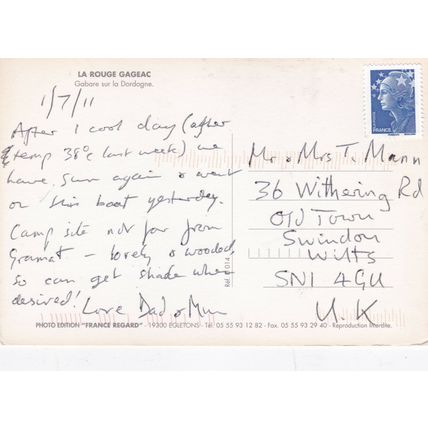 LA ROUGE GAGEAC
Gabare sur la Dordogne.
1/7/11
After 1 cool day (after
temp 38°c last week) we
have sun again & went
on this boat yesterday.
Camp site not far from
Gramat – lovely & wooded,
so can get shade when
desired!
Love Dad & Mum
Mr & Mrs T. Mann
36 Withering Rd
Old Town
Swindon
Wilts
SN1 4GU
U.K
FRANCE
Réf. 014
PHOTO EDITION "FRANCE REGARD" - 19300 EGLETONS - Tél. 05 55 93 12 82 - Fax. 05 55 93 29 40 - Reproduction interdite.